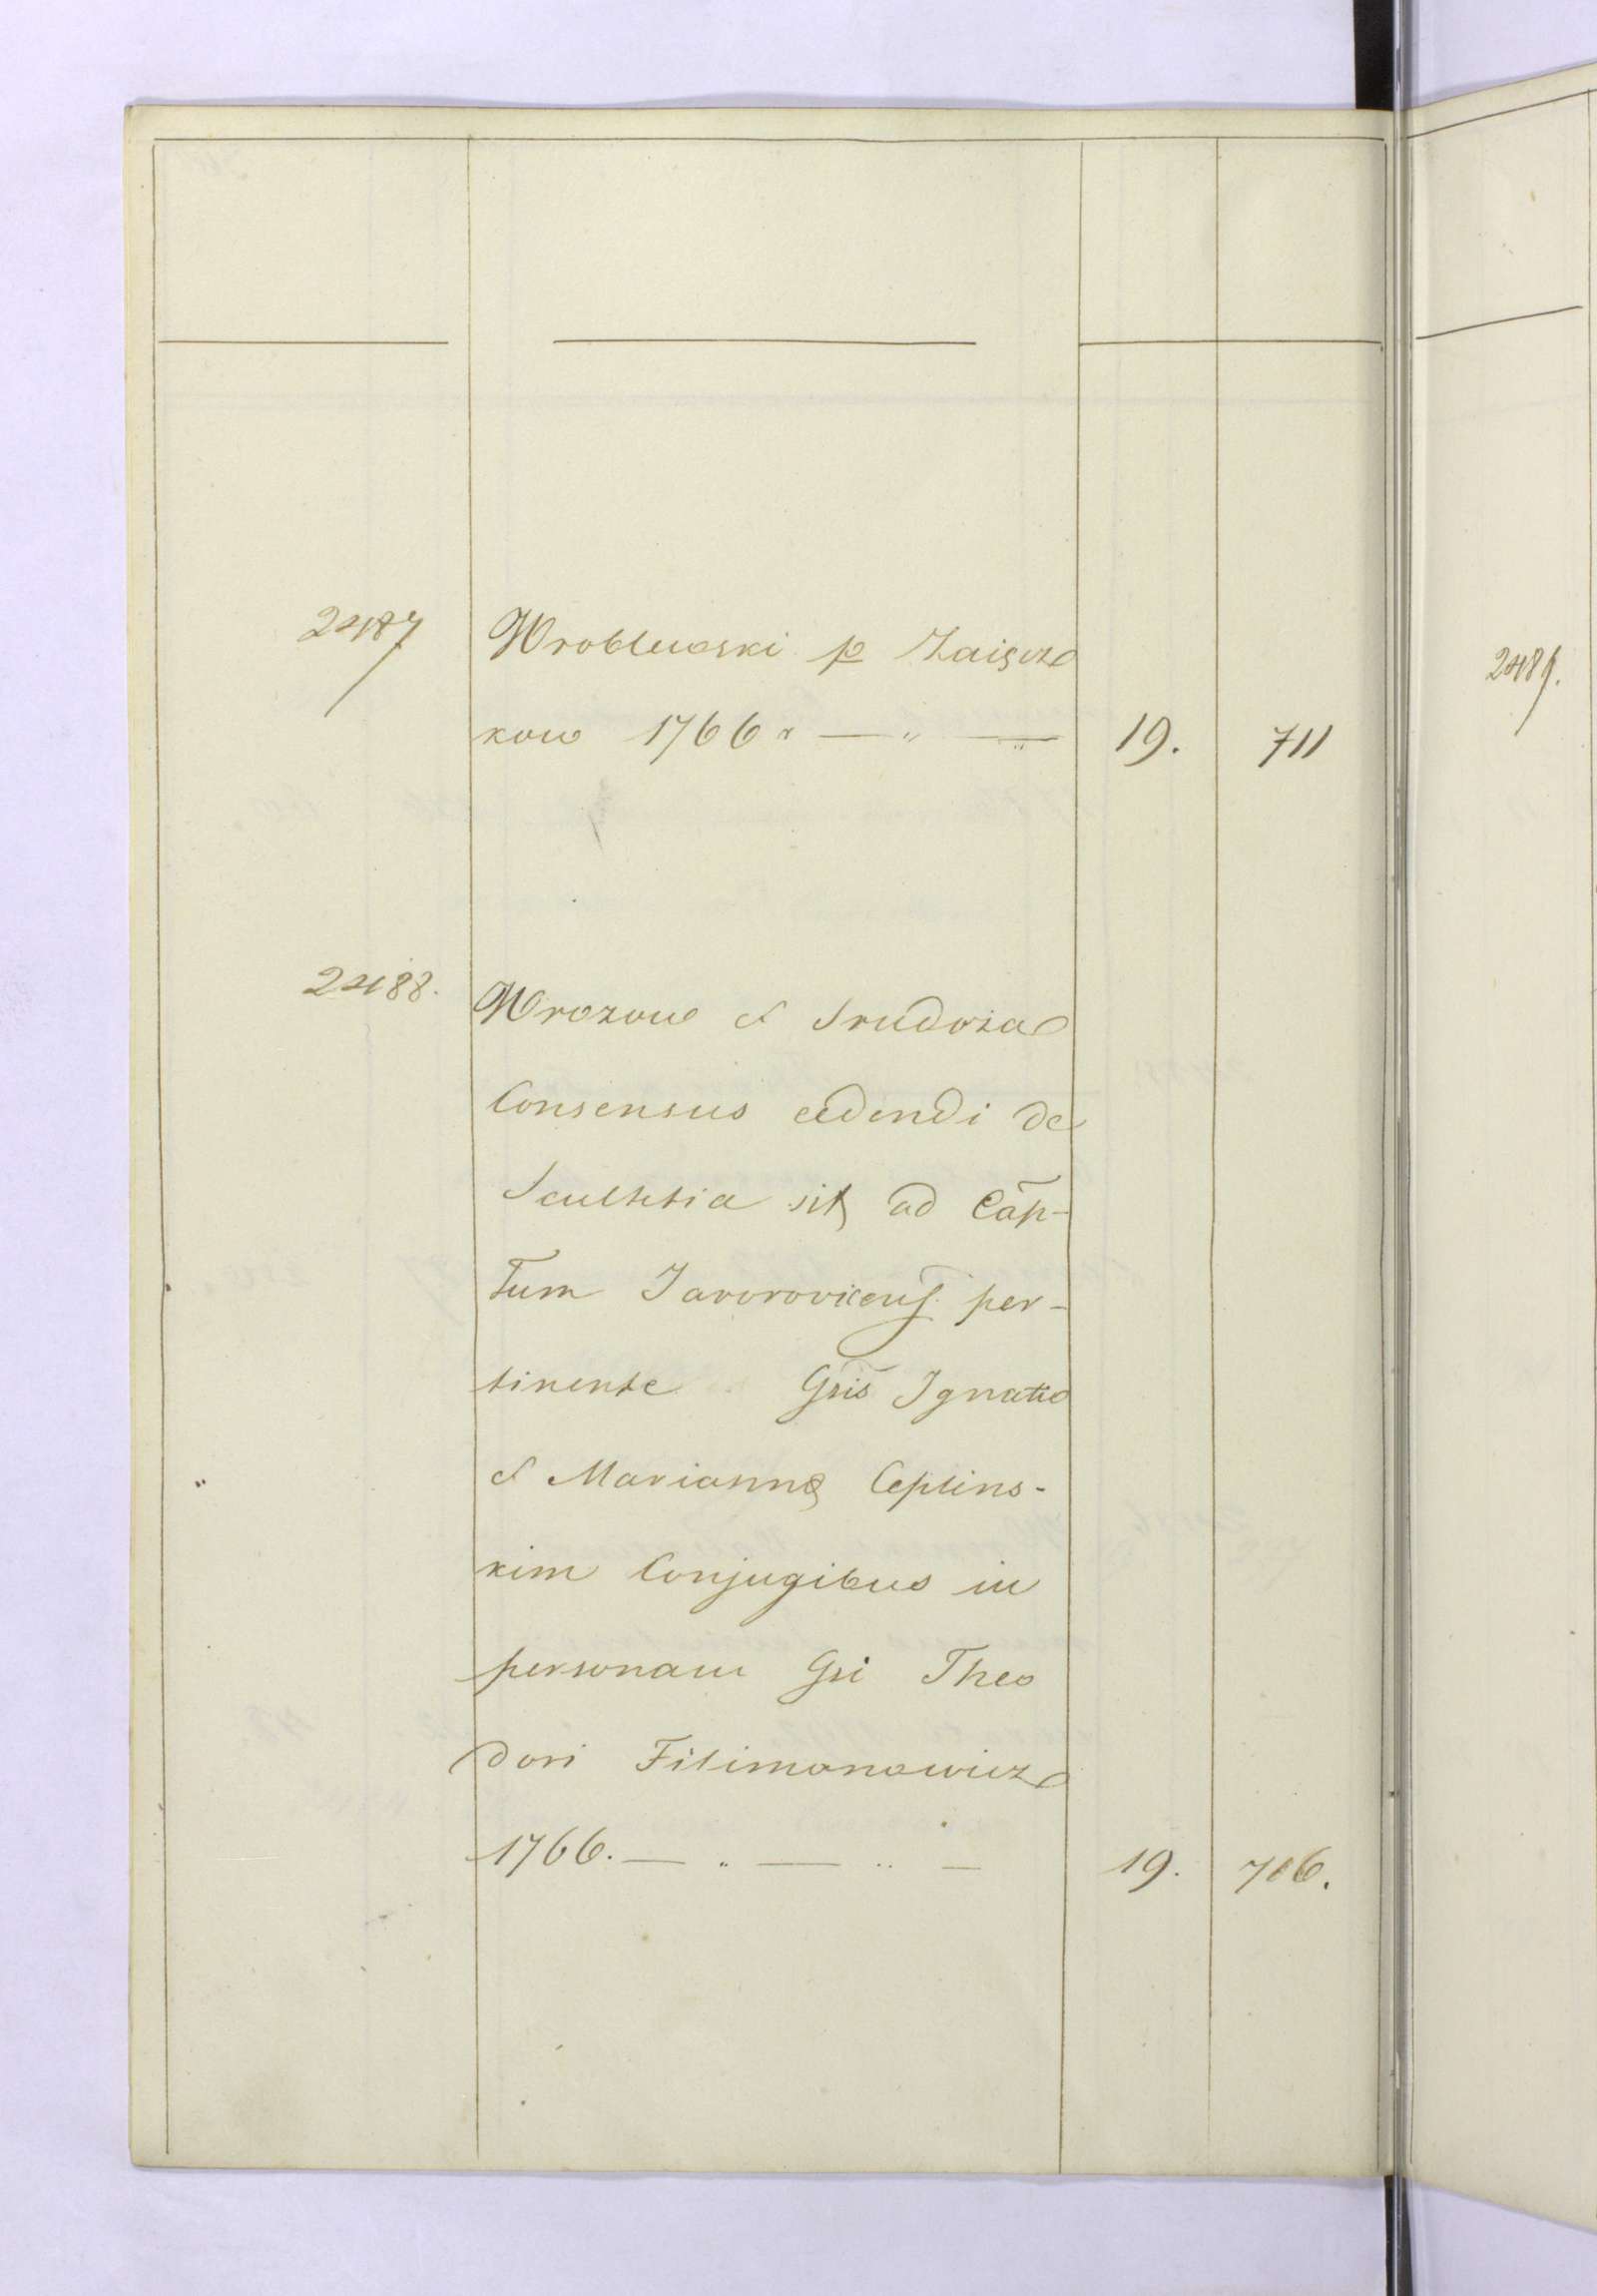 2487 Wroblewski p Zaiącz
kow 1766 r — " — " 19. 711
2488. Wrozow et Srudoza
Consensus cedendi de
Scultetia sit ad Cap̄-
tum Javoroviens. per-
tinente Gsis Ignatio
et Mariannę Ceptins-
kim Conjugibus in
personam Gsi Theo
dori Filimonowicz
1766. — " — " — 19. 706.
2489.